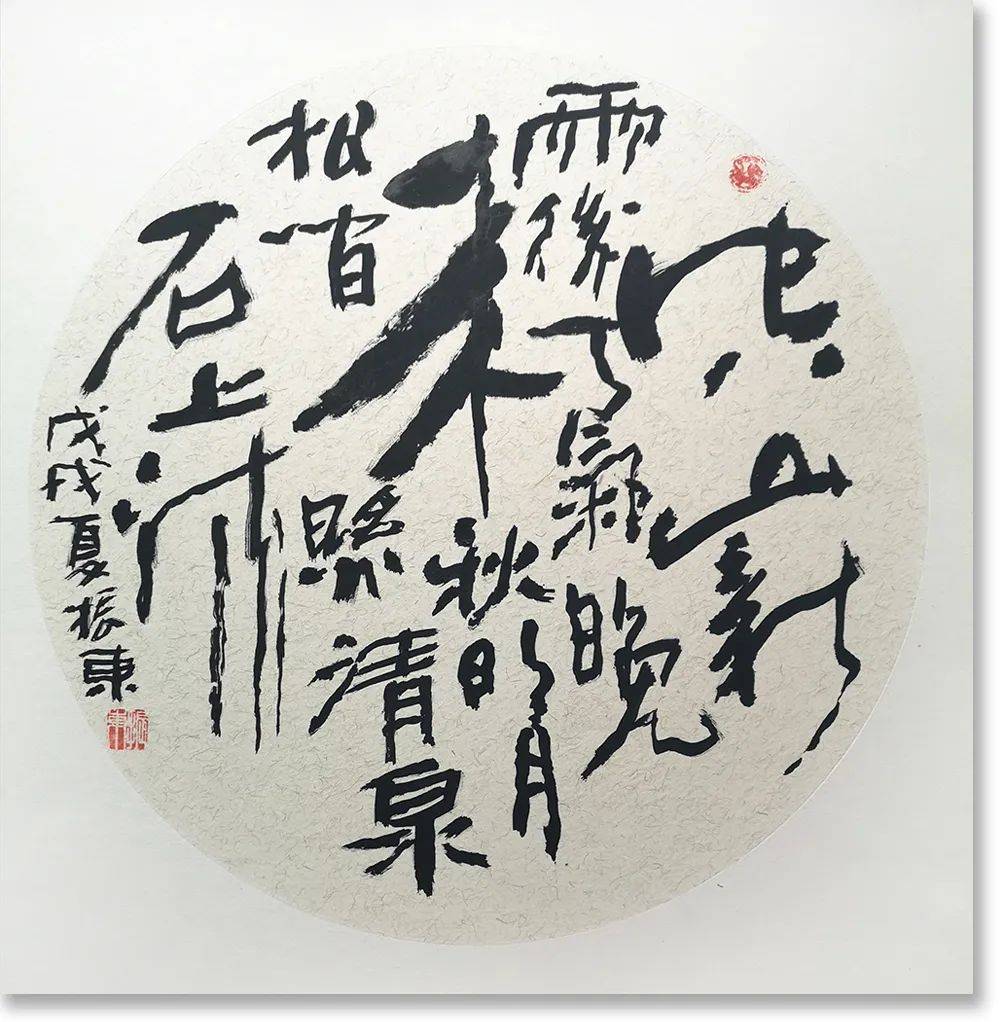 空山新
雨後天氣晚
来秋明月
松間照清泉
石上流
戊戌夏振東
振東